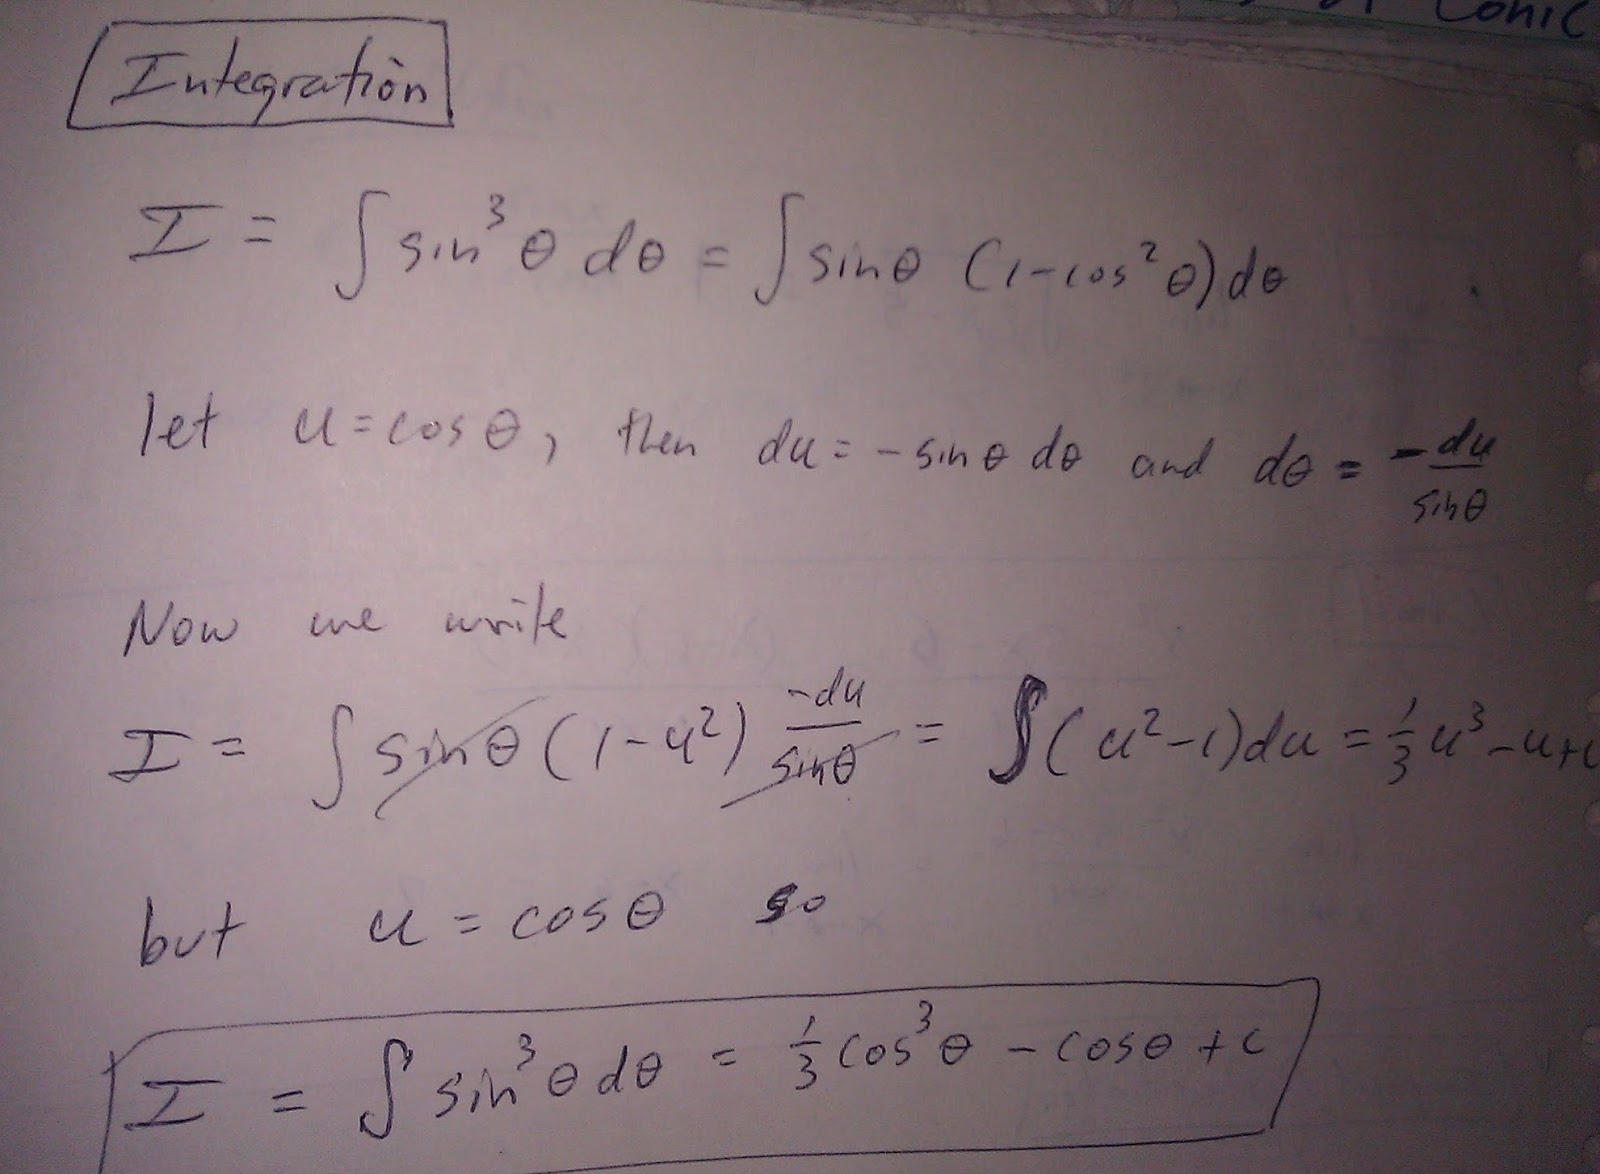 Conic
Integration
I = ∫ sin³ θ dθ = ∫ sinθ (1-cos² θ) dθ
let u = cos θ, then du = - sin θ dθ and dθ = -du/sinθ
Now we write
I = ∫ sinθ (1-u²) -du/sinθ = ∫ (u²-1) du = 1/3 u³ - u + c
but u = cos θ so
I = ∫ sin³ θ dθ = 1/3 cos³ θ - cos θ + c